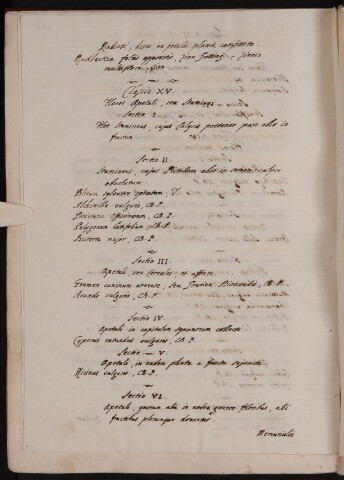 Radiati, disco ex petalis planis composito
Rudbeckia foliis oppositis,
Classis XV.
Flores Apetali, seu Staminei
Sectio I.
Flos Stamineus, cujus Calyce posterior pars abit in
fructum
Sectio II.
Stamineus, cujus Pistillum abit in semen calyce
obvolutum
Alchimilla vulgaris, CB. P.
Parietaria Officinarum, CB. P
Polygonum latifolium CB. P
Bistorta major, CB. P.
Sectio III.
Apetali, seu Cereales, et affines.
Gramen caninum arvense, seu Gramen Dioscoridis, CB. P
Arundo vulgaris, CB. P.
Sectio IV.
Apetali in capitulum squamosum collecti
Cyperus rotundus vulgaris, CB. P.
Sectio V.
Apetali, in eadem planta a fructu sejuncti
Ricinus vulgaris, CB. P.
Sectio VI.
Apetali, quorum alii in eodem genere floribus, alii
fructibus plerumque donantur
Mercurialis